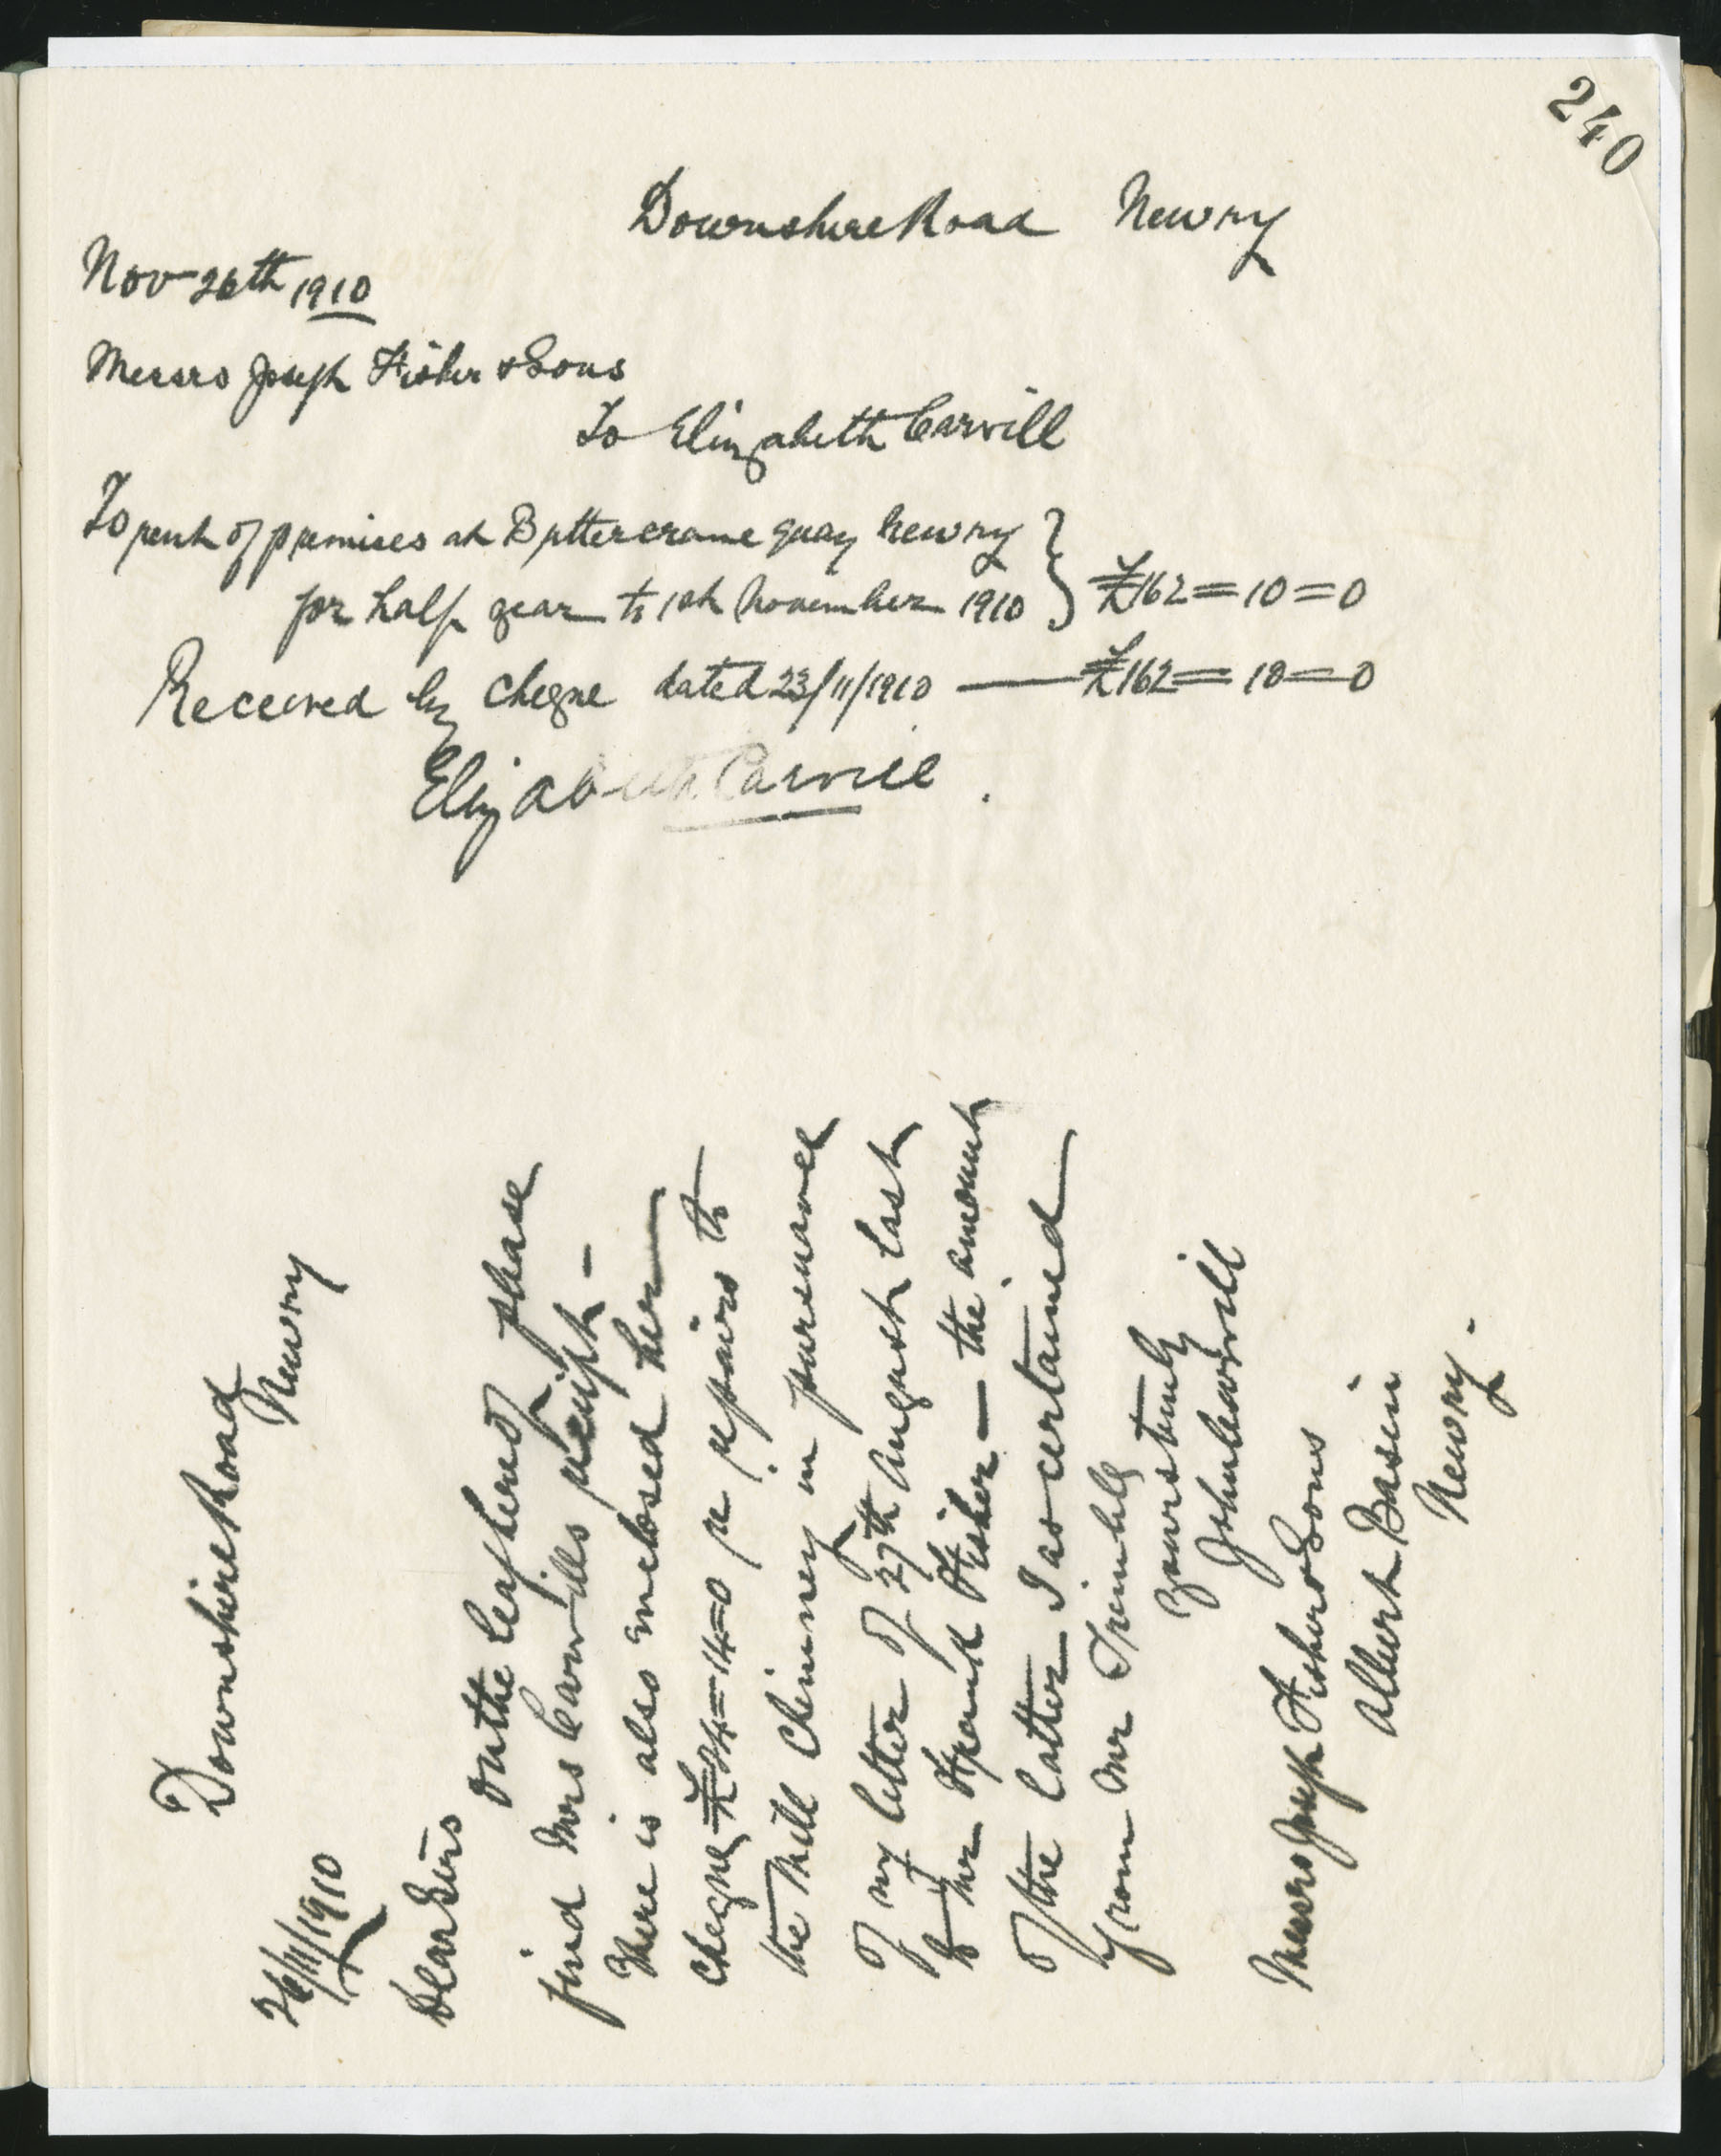 240
Downshire Road Newry
Nov 26th 1910
Messrs Joseph Fisher & Sons
To Elizabeth Carvill
To rent of premises at Buttercrane quay Newry
for half year to 1st November 1910 } £162=10=0
Received by cheque dated 23/11/1910 — £162=10=0
Elizabeth Carvill.
Downshire Road
Newry
26/11/1910
Dear Sirs
On the leaf hereof please
find Mrs Carvills receipt –
There is also enclosed her
cheque £24=14=0 re repairs to
the Mill Chimney in pursuance
of my letter of 27th August last
to Mr Frank Fisher – the amount
of the latter I ascertained
from Mr Trimble
Yours truly
John Carvill
Messrs Joseph Fisher & Sons
Albert Basin
Newry.